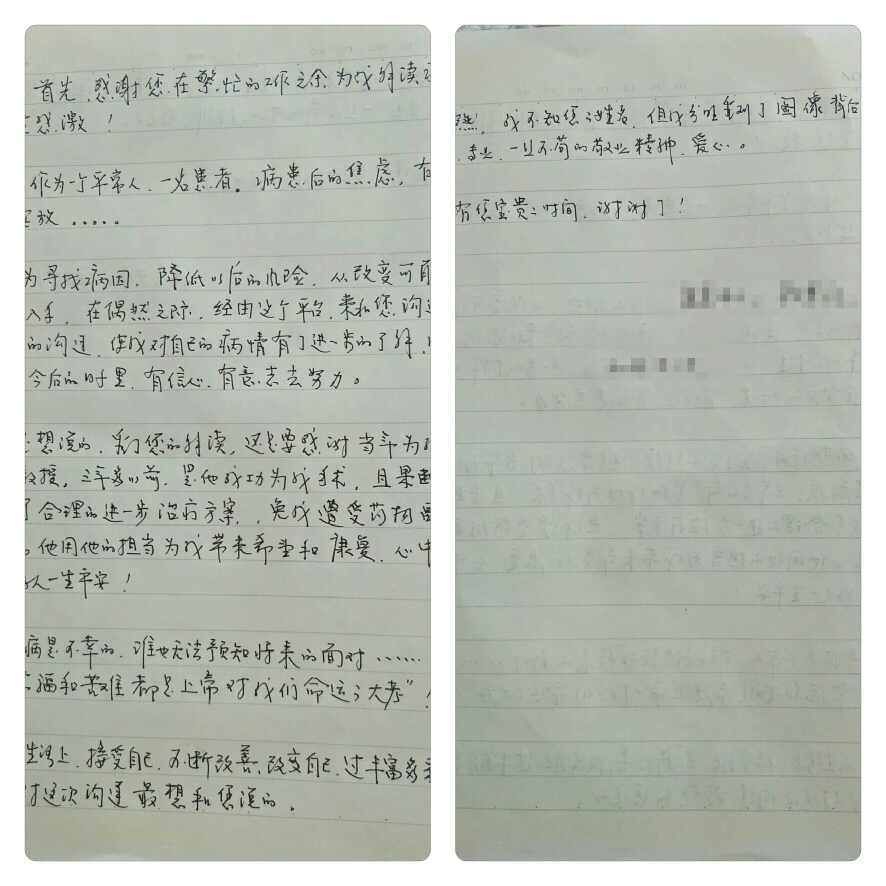 首先,感谢您在繁忙的工作之余为我解读
感激!
作为一个平常人,一名患者。病患后的焦虑,有
放.....
为寻找病因,降低以后的风险,从改变可
入手,在偶然之际,经由这个平台,来和您沟
的沟通,使我对自己的病情有了进一步的了解,
今后的时里,有信心,有意志去努力。
想说的,除了您的解读,还是要感谢当年为
教授,三年多以前,是他成功为我手术,且果
了合理的进一步治疗方案,免我遭受药物
他用他的担当为我带来希望和康复,心中
人一生平安!
病是不幸的,谁也无法预知将来的面对......
福和苦难都是上帝对我们命运之大考"
生活上,接受自己,不断改善、改变自己,过丰富多
这次沟通最想和您说的。
然,我不知您之姓名,但我分明看到了图像背后
专业,一丝不苟的敬业精神,爱心。
有您宝贵之时间,谢谢了!